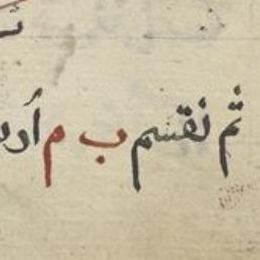 ثم نقسم ب م